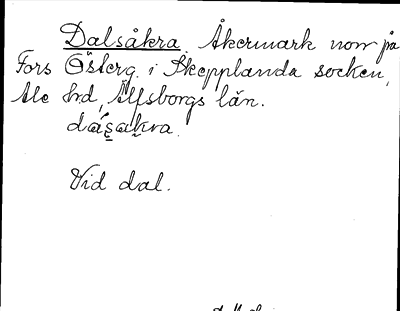 Dalsåkra. Åkermark norr på
Fors Österg. i Skepplanda socken,
Ale hd, Älfsborgs län.
dásakra.
Vid dal.